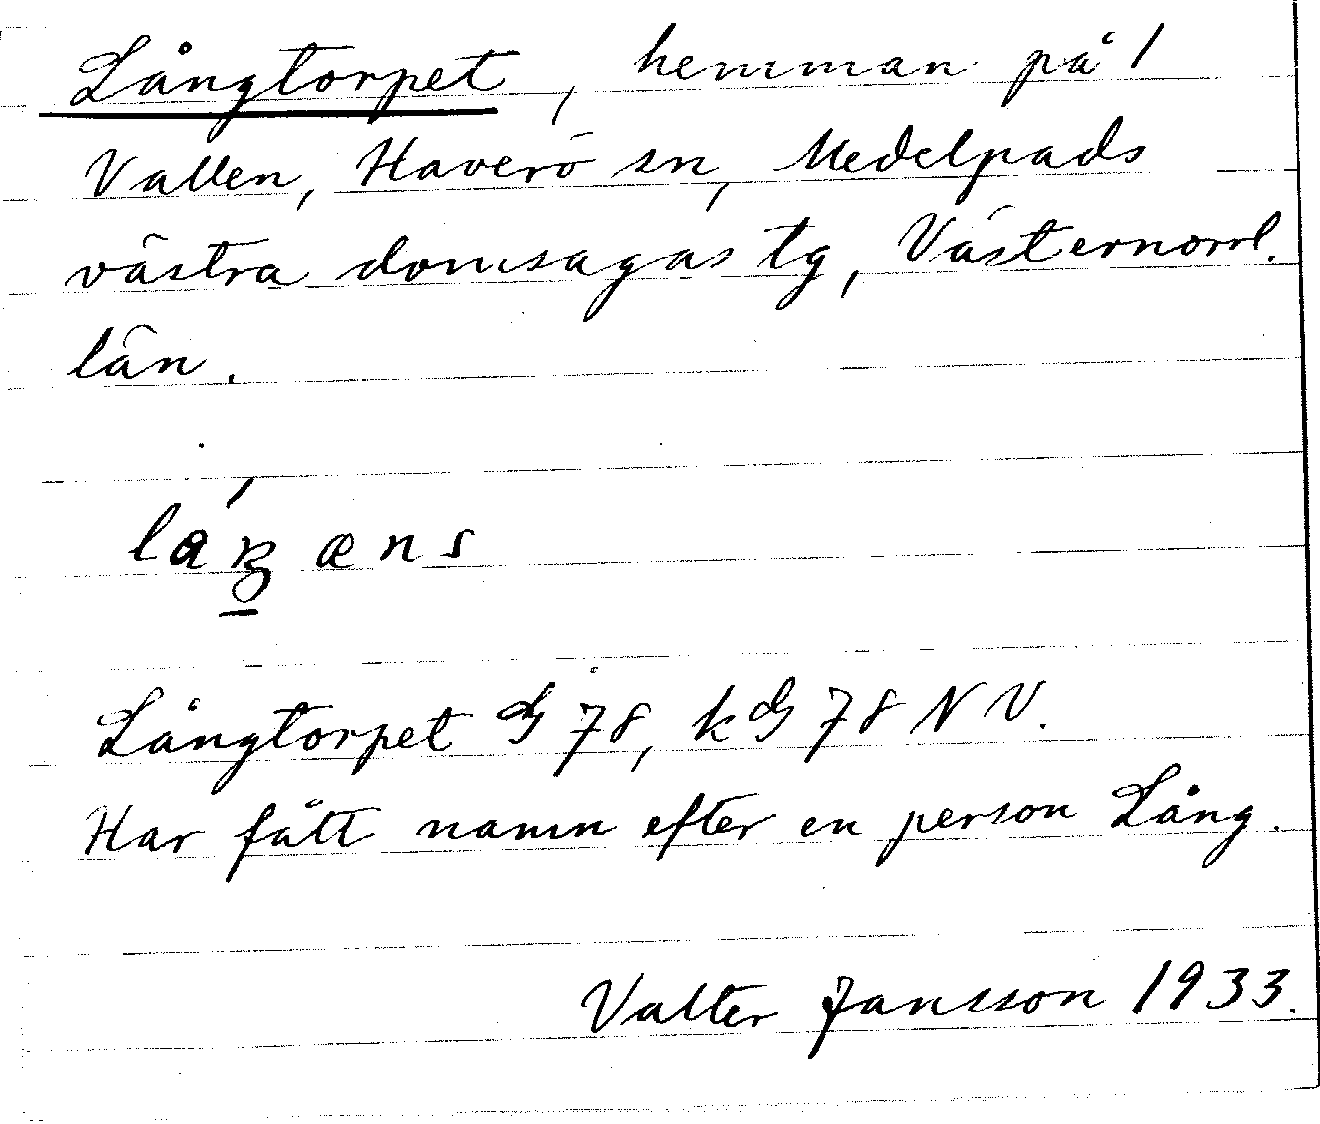 Långtorpet, hemman på 1
Vallen, Haverö sn, Medelpads
västra domsagas tg, Västernorrl.
län.
Långtorpet G 78, k G 78 N V.
Har fått namn efter en person Lång.
Valter Jansson 1933.